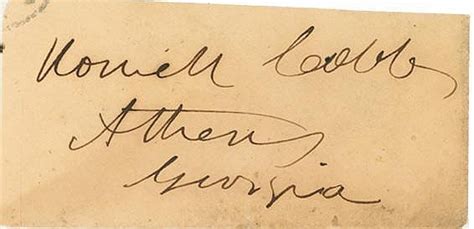 Howell Cobb
Athens
Georgia